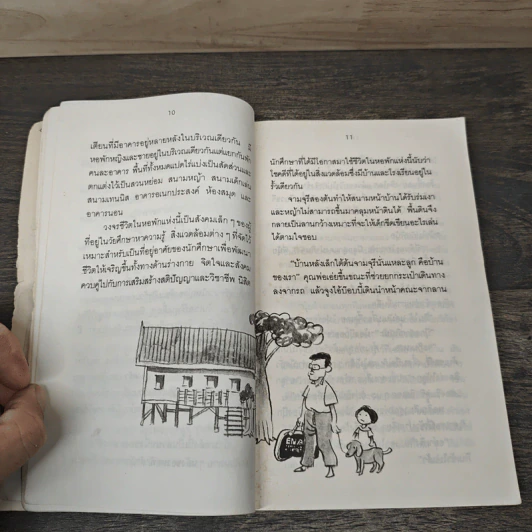 10
เตียนที่มีอาคารอยู่หลายหลังในบริเวณเดียวกัน มี
หอพักหญิงและชายอยู่ในบริเวณเดียวกันแต่แยกกันพัก
คนละอาคาร พื้นที่ทั้งหมดแปดไร่แบ่งเป็นสัดส่วน
ตกแต่งไว้เป็นสวนหย่อม สนามหญ้า สนามเด็กเล่น
สนามเทนนิส อาคารอเนกประสงค์ ห้องสมุด และ
อาคารนอน
วงจรชีวิตในหอพักแห่งนี้เป็นสังคมเล็ก ๆ ของผู้
ที่อยู่ในวัยศึกษาหาความรู้ สิ่งแวดล้อมต่าง ๆ ที่จัดไว้
เหมาะสำหรับเป็นที่อยู่อาศัยของนักศึกษาเพื่อพัฒนา
ชีวิตให้เจริญขึ้นทั้งทางด้านร่างกาย จิตใจและสังคม
ควบคู่ไปกับการเสริมสร้างสติปัญญาและวิชาชีพ นิสิต
11
นักศึกษาที่ได้มีโอกาสมาใช้ชีวิตในหอพักแห่งนี้นับว่า
โชคดีที่ได้อยู่ในสิ่งแวดล้อมซึ่งมีบ้านและโรงเรียนอยู่ใน
รั้วเดียวกัน
จามจุรีสองต้นทำให้สนามหน้าบ้านได้รับร่มเงา
และหญ้าไม่สามารถขึ้นมาคลุมหน้าดินได้ พื้นดินจึง
กลายเป็นลานกว้างเหมาะที่จะให้เด็กขีดเขียนอะไรเล่น
ได้ตามใจชอบ
"บ้านหลังเล็กใต้ต้นจามจุรีนั่นแหละลูก คือบ้าน
ของเรา" คุณพ่อเอ่ยขึ้นขณะที่ช่วยยกกระเป๋าเดินทาง
ลงจากรถ แล้วจูงไอ้บ๊อบบี้เดินนำหน้าคณะจากลาน